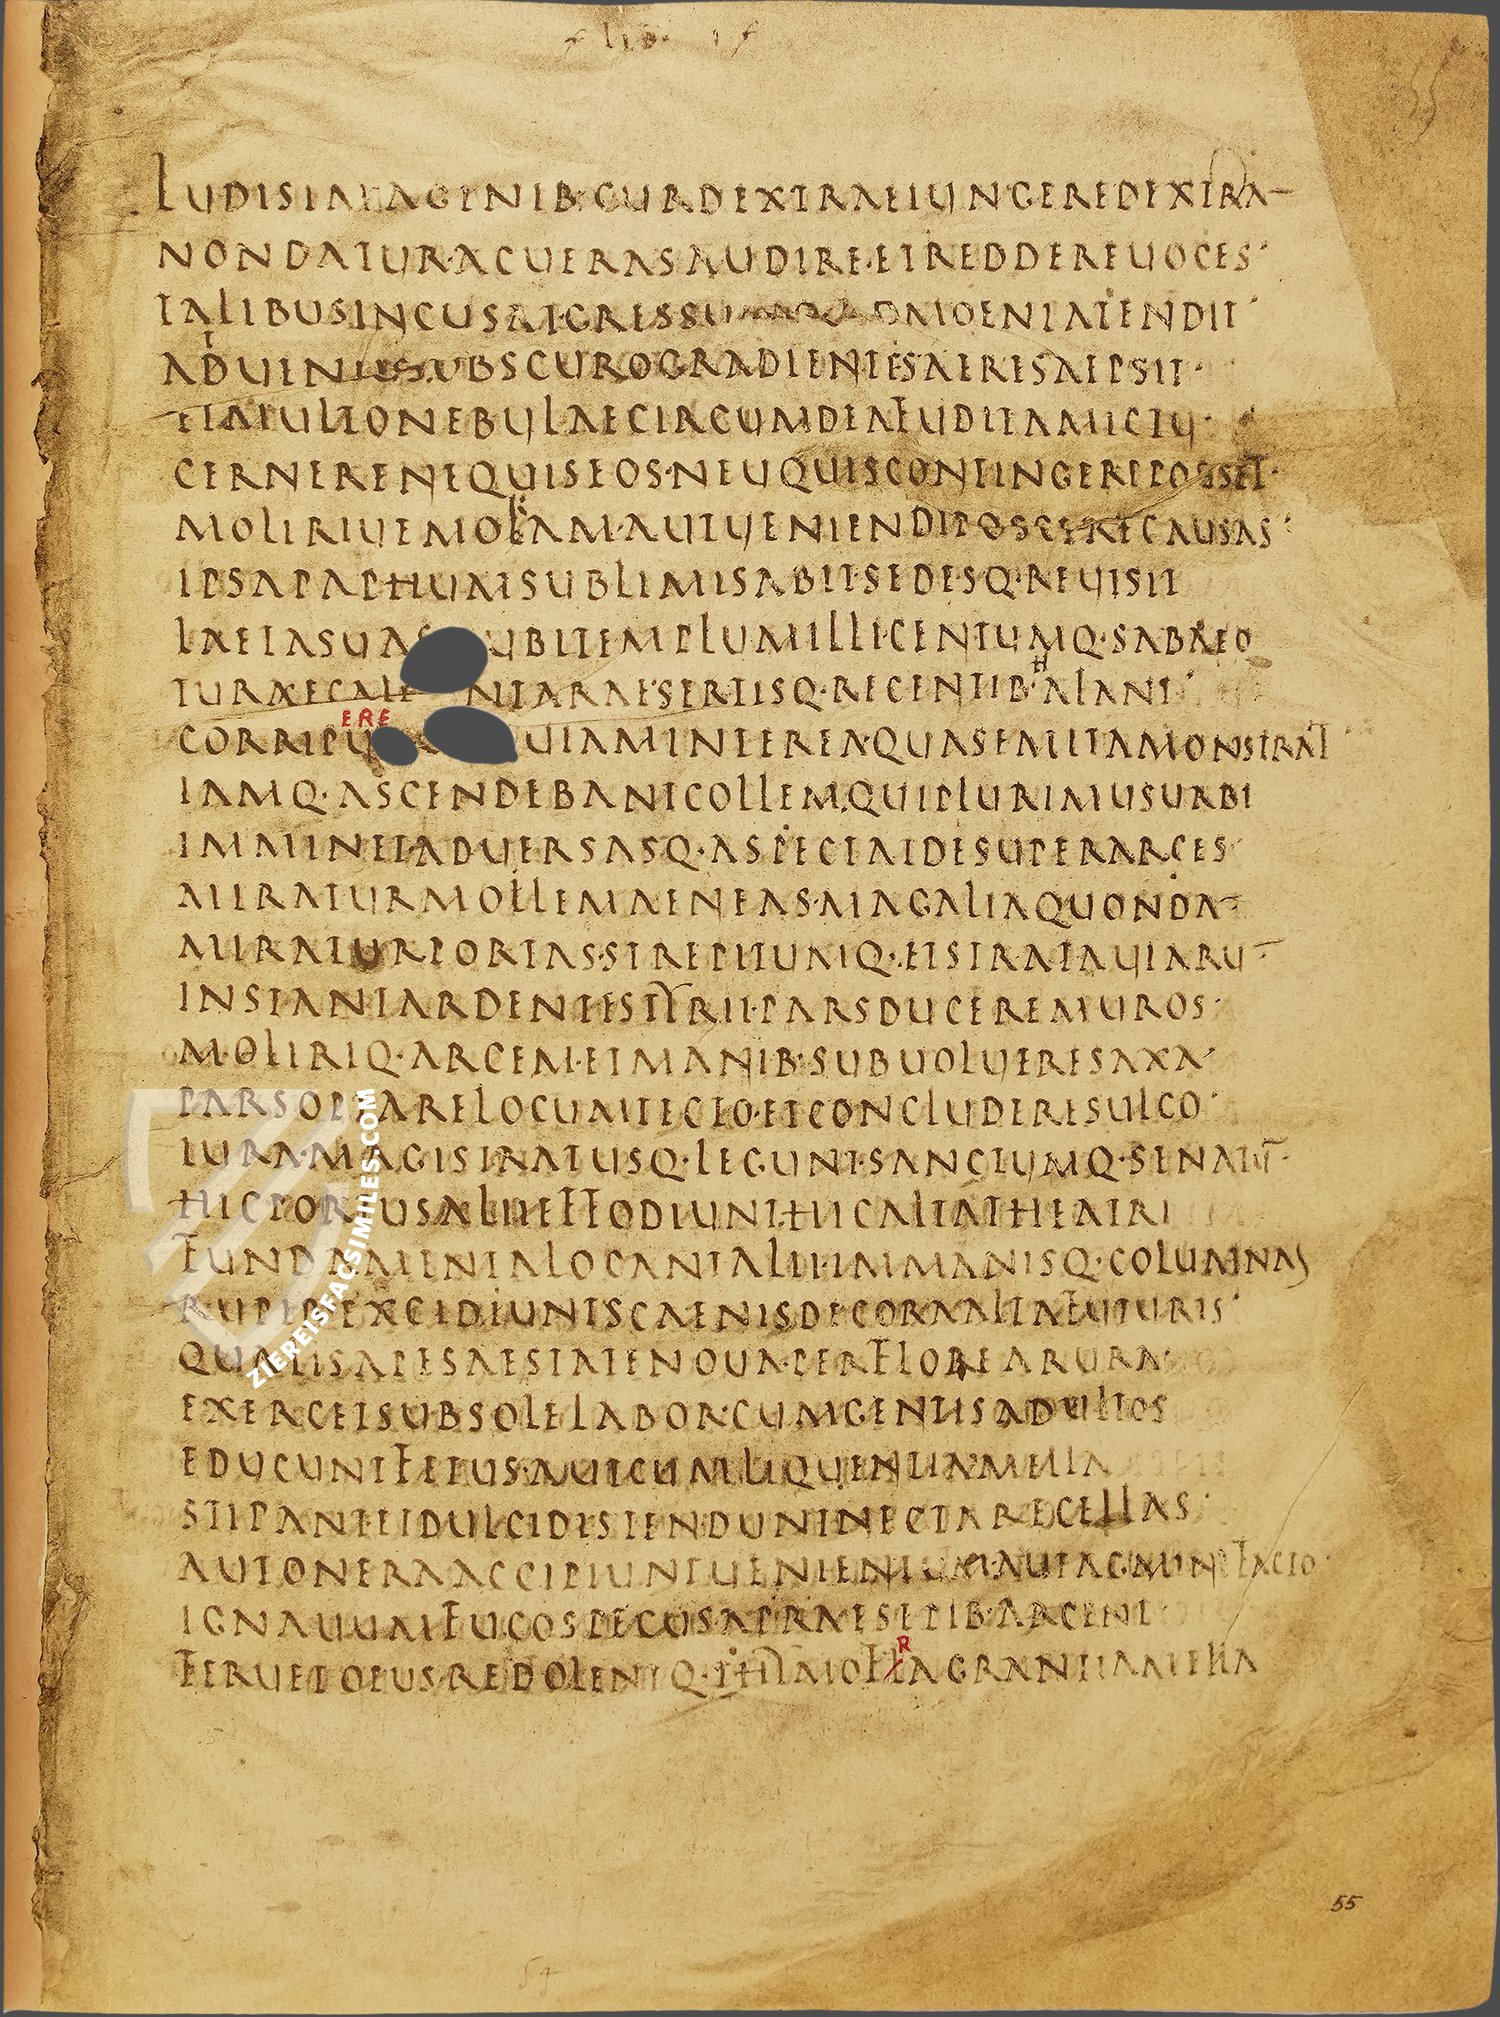 LUDISIMAGINIB·CURDEXTRAEIUNGEREDEXTRA
NONDATUR·ACUERASAUDIRE·ETREDDEREUOCES
TALIBUSINCUSAT·GRESSUMQ·ADMOENIATENDIT
ADUENUSOBSCUROGRADIENTESAERESAEPSIT
ETMULTONEBULAECIRCUMDEAFUDITAMICTU
CERNERENEQUISEOS·NEUQUISCONTINGEREPOSSET·
MOLIRIUEMORAM·AUTUENIENDIPOSCERECAUSAS
IPSAPAPHUMSUBLIMISABIT·SEDESQ·REUISIT
LAETASUAS UBITEMPLUMILLI·CENTUMQ·SABAEO
TURAECALE NTARAE·SERTISQ·RECENTIB·HALANT
ERE
CORRIPU UIAMINTEREA·QUASEMITAMONSTRAT
IAMQ·ASCENDEBANTCOLLEM·QUIPLURIMUSURBI
IMMINET·ADUERSASQ·ASPECTATDESUPERARCES
MIRATURMOLLEMAENEAS·MAGALIAQUONDA
MIRATURPORTAS·STREPITUMQ·ETSTRATAUIARU
INSTANTARDENTESTYRII·PARSDUCEREMUROS
MOLIRIQ·ARCEM·ETMANIB·SUBUOLUERESAXA
PARSOPTARELOCUMTECTO·ETCONCLUDERESULCO
IURA·MAGISTRATUSQ·LEGUNT·SANCTUMQ·SENATU
HICPORTUSALIIEFFODIUNT·HICALTATHEATRI
FUNDAMENTALOCANTALII·IMMANISQ·COLUMNAS
RUPIBEXCIDIUNTSCAENISDECORAALTAFUTURIS
QUALISAPESAESTATENOUA·PERFLOREARURA
EXERCETSUBSOLELABOR·CUMGENTISADULTOS
EDUCUNTFETUS·AUTCUMLIQUENTIAMELLA
STIPANTETDULCIDISTENDUNTNECTARECELLAS
AUTONERAACCIPIUNTUENIENTUM·AUTAGMINEFACTO
IGNAUUMFUCOSPECUSAPRAESEPIB·ARCENT
R
FERUETOPUSREDOLENTQ·THYMOFLAGRANTIAMELLA
ZIEREISFACSIMILES.COM
55